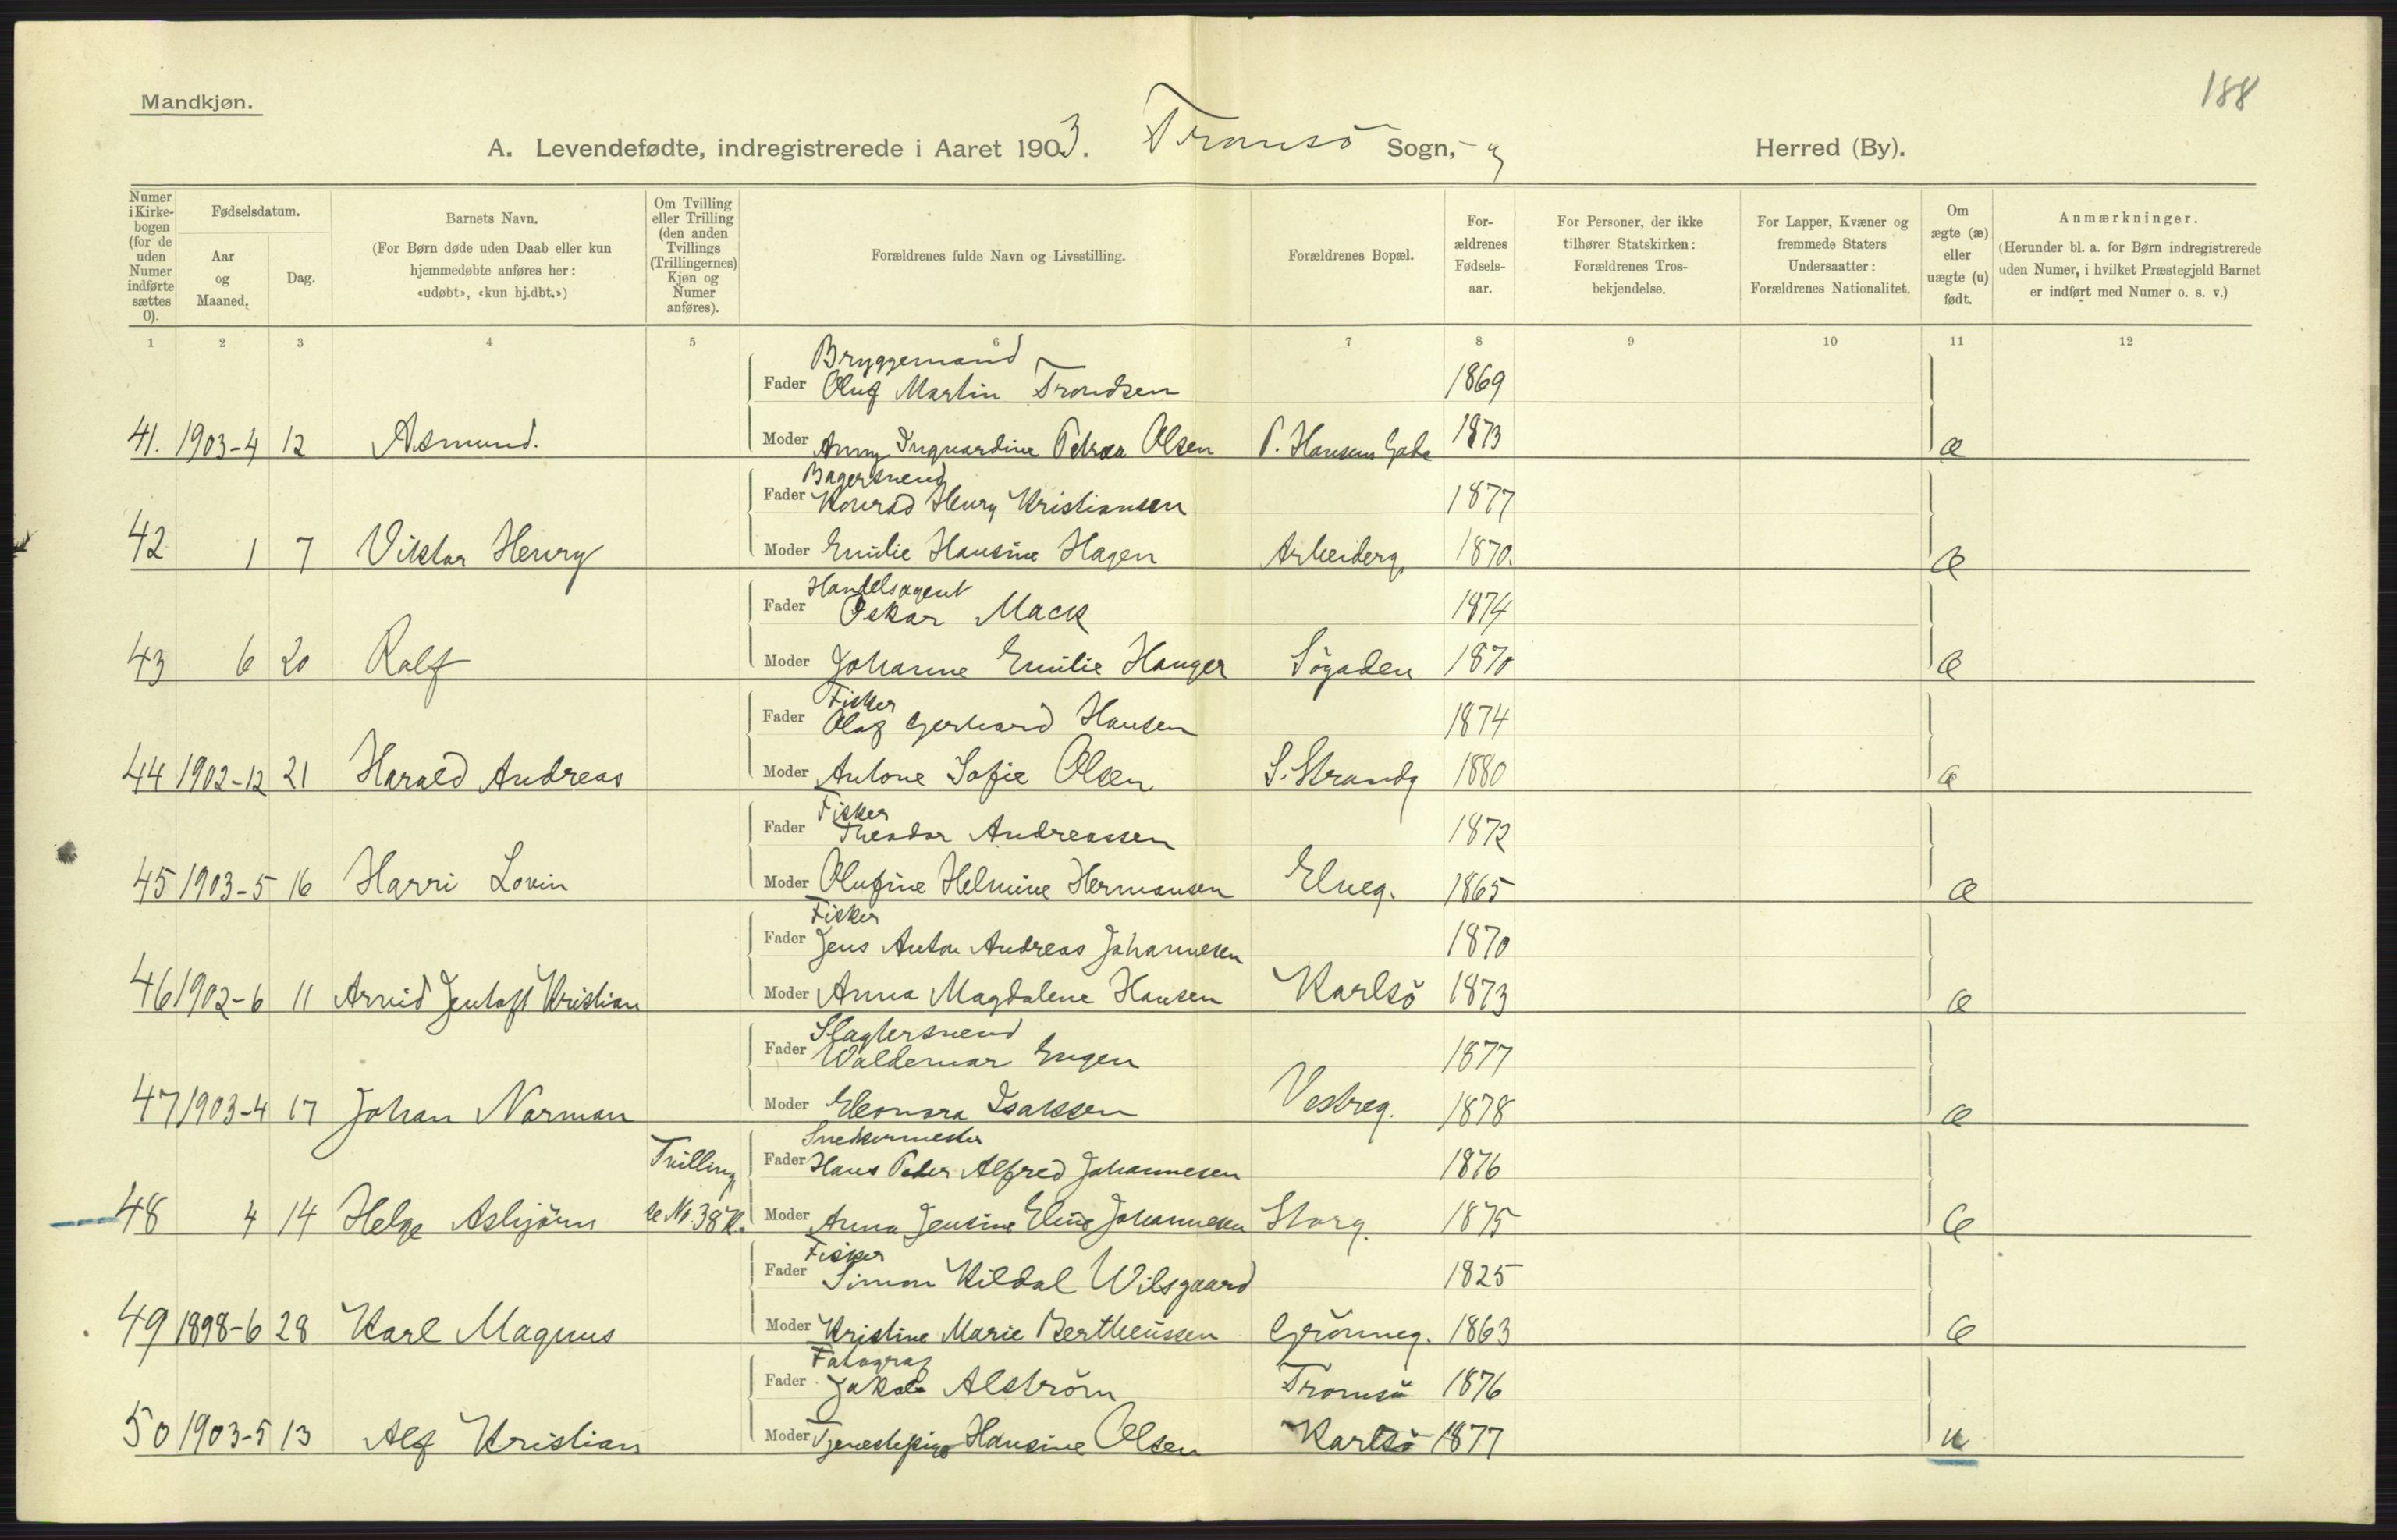 188
Mandkjøn.
A. Levendefødte, indregistrerede i Aaret 1903. Tromsö Sogn, Herred (By).
Numer i Kirke-bogen (for de uden Numer indførte sættes 0).
Fødselsdatum.
Aar og Maaned.
Dag.
Barnets Navn.
(For Børn døde uden Daab eller kun hjemmedøbte anføres her: «udøbt», «kun hj.dbt.»)
Om Tvilling eller Trilling (den anden Tvillings (Trillingernes) Kjøn og Numer anføres).
Forældrenes fulde Navn og Livsstilling.
Forældrenes Bopæl.
For-ældrenes Fødsels-aar.
For Personer, der ikke tilhører Statskirken: Forældrenes Tros-bekjendelse.
For Lapper, Kvæner og fremmede Staters Undersaatter: Forældrenes Nationalitet.
Om ægte (æ) eller uægte (u) født.
Anmærkninger.
(Herunder bl. a. for Børn indregistrerede uden Numer, i hvilket Præstegjeld Barnet er indført med Numer o. s. v.)
1 2 3 4 5 6 7 8 9 10 11 12
Bryggemand
Fader Oluf Martin Trondsen 1869
41. 1903-4 12 Asmund. Moder Anny Inguardine Petrea Olsen P. Hansens Gade 1873 æ
Bagersvend
Fader Konrad Henry Kristiansen 1877
42 1 7 Viktor Henry Moder Emilie Hansine Hagen Arbeiderg. 1870. æ
Handelsagent
Fader Oskar Mack 1874
43 6 20 Ralf Moder Johanne Emilie Hanger Sögaden 1870 æ
Fisker
Fader Olaf Gerhard Hansen 1874
44 1902-12 21 Harald Andreas Moder Antone Sofie Olsen S. Strandg 1880 æ
Fisker
Fader Theodor Andreassen 1872
45 1903-5 16 Harri Lovin Moder Olufine Helmine Hermansen Elveg. 1865 æ
Fisker
Fader Jens Anton Andreas Johannesen 1870
46 1902-6 11 Arvid Jentoft Kristian Moder Anna Magdalene Hansen Karlsö 1873 æ
Slagtersvend
Fader Waldemar Engen 1877
47 1903-4 17 Johan Norman Moder Eleonora Isaksen Vestreg. 1878 æ
Tvilling Snedkermester
Fader Hans Peder Alfred Johannesen 1876
48 4 14 Helge Asbjörn se No 38 K. Moder Anna Jensine Elise Johannesen Storg. 1875 æ
Fisker
Fader Simon Kildal Wilsgaard 1825
49 1898-6 28 Karl Magnus Moder Kristine Marie Bertheussen Grönneg. 1863 æ
Fotograf
Fader Jakob Alström Tromsö 1876
50 1903-5 13 Alf Kristian Moder Tjenestepige Hansine Olsen Karlsö 1877 u